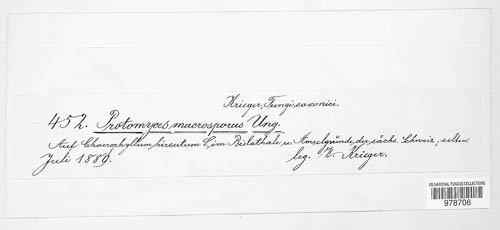 Krieger, Fungi saxonici.
452. Protomyces macrosporus Ung.
Auf Chaerophyllum hirsutum L., im Bielathale u. Amselgrunde der sächs. Schweiz, selten.
Juli 1889. leg. W. Krieger.
US NATIONAL FUNGUS COLLECTIONS
978706